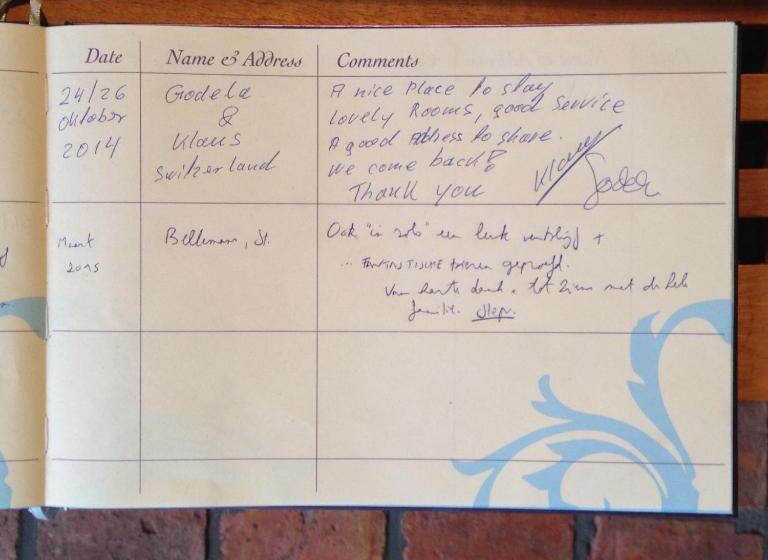 Date Name & Address Comments
24/26
Oktober
2014
Godela
&
Klaus
Switzerland
A nice place to stay
Lovely Rooms, good Service
A good Adress to share.
We come back!
Thank you
Klaus
Maart
2015
Bellemans, St.
Ook "in solo" een leuk verblijf +
... FANTASTISCHE geproefd.
Van harte dank. tot ziens met de hele
familie. Step.